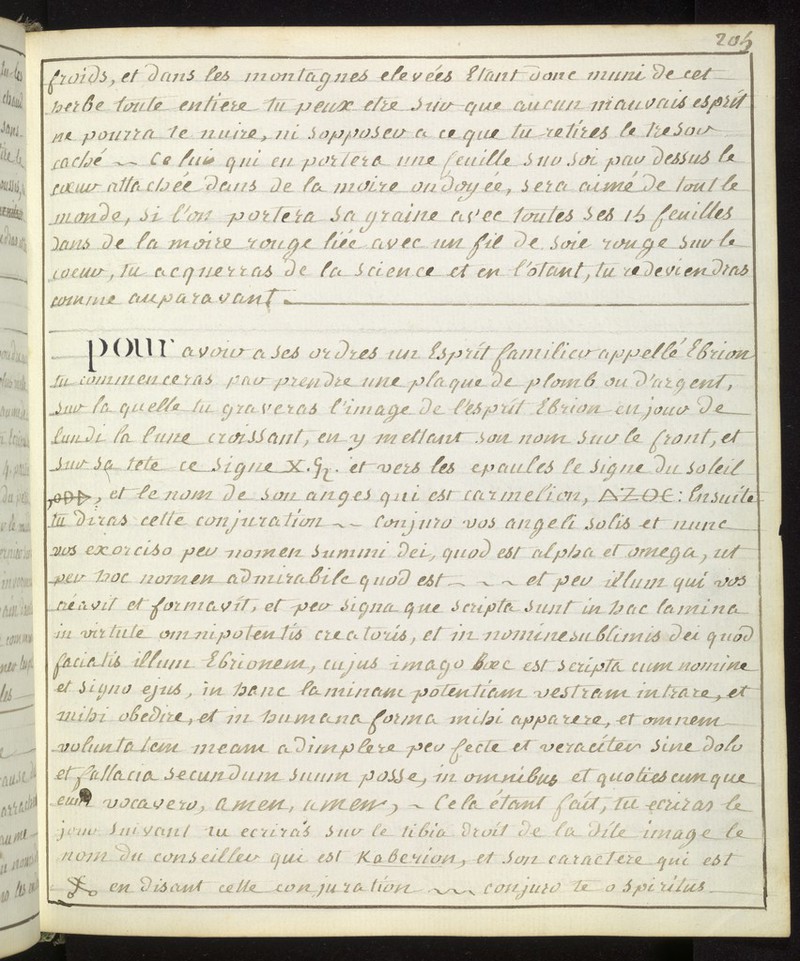 205
froids, et dans les montagnes elevées Etant donc muni de cet
herbe toute entiere tu peux etre sur que aucun mauvais esprit
ne pourra te nuire, ni sopposer a ce que tu retires le tresor
caché ~ Celui qui en portera une feuille sur soi par dessus le
cœur attachée dans de la moire ondoyée, sera aimé de tout le
monde, si l'on portera sa graine avec toutes ses 15 feuilles
dans de la moire rouge liée avec un fil de soie rouge sur le
coeur, tu acquerras de la science et en l'otant, tu redeviendras
comme auparavant.
pour avoir a ses ordres un Esprit familier appellé Ebrion
tu commenceras par prendre une plaque de plomb ou d'argent,
sur la quelle tu graveras l'image de l'esprit Ebrion en jour de
lundi la lune croissant, en y mettant son nom sur le front, et
sur sa tete ce signe X. et vers les epaules le signe du soleil
, et le nom de son anges qui est carmelion, : Ensuite
tu diras cette conjuration ~ ~ Conjuro vos angeli solis et nunc
vos exorciso per nomen summi dei, quod est alpha et omega, ut
per hoc nomen admirabile quod est ~ ~ ~ et per illum qui vos
creavit et formavit, et per signa que scripta sunt in hac lamina
in virtute omnipotentis creatoris, et in nomine sublimis dei quod
faciatis illum Ebrionem, cujus imago hæc est scripta cum nomine
et signo ejus, in hanc laminam potentiam vestram intrare, et
mihi obedire, et in humana forma mihi apparere, et omnem
voluntatem meam adimplere perfecte et veraciter sine dolo
et fallacia secundum suum posse, in omnibus et quotiescumque
eum vocavero, amen, amen, ~ Cela étant fait, tu ecriras le
jour suivant tu ecriras sur le tibia droit de la dite image le
nom du conseiller qui est Kaberion, et son caractere qui est
en disant cette conjuration ~ ~ conjuro te o Spiritus